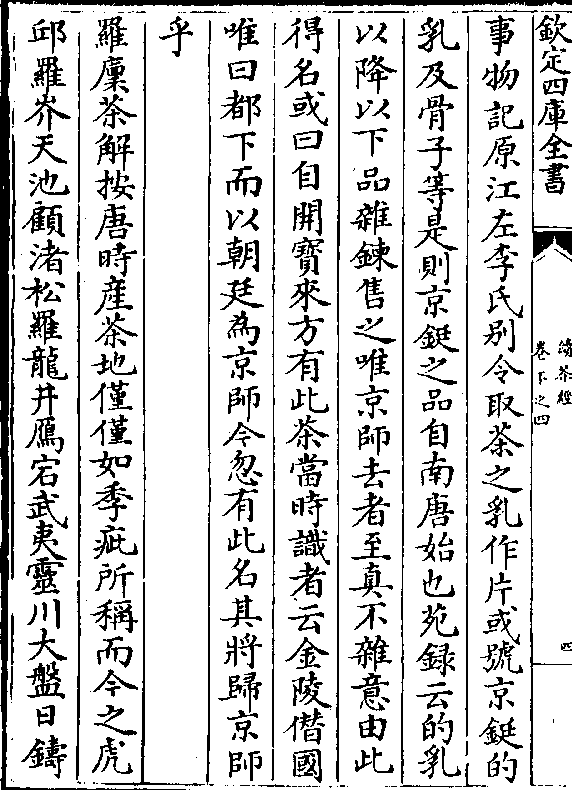 欽定四庫全書
續茶經
卷下之四
四
事物記原江左李氏别令取茶之乳作片或號京鋌的
乳及骨子等是則京鋌之品自南唐始也苑録云的乳
以降以下品雜鍊售之唯京師去者至真不雜意由此
得名或曰自開寳來方有此茶當時識者云金陵僭國
唯曰都下而以朝廷為京師今忽有此名其將歸京師
乎
羅廩茶解按唐時産茶地僅僅如季疵所稱而今之虎
邱羅岕天池顧渚松羅龍井鴈宕武夷靈川大盤日鑄